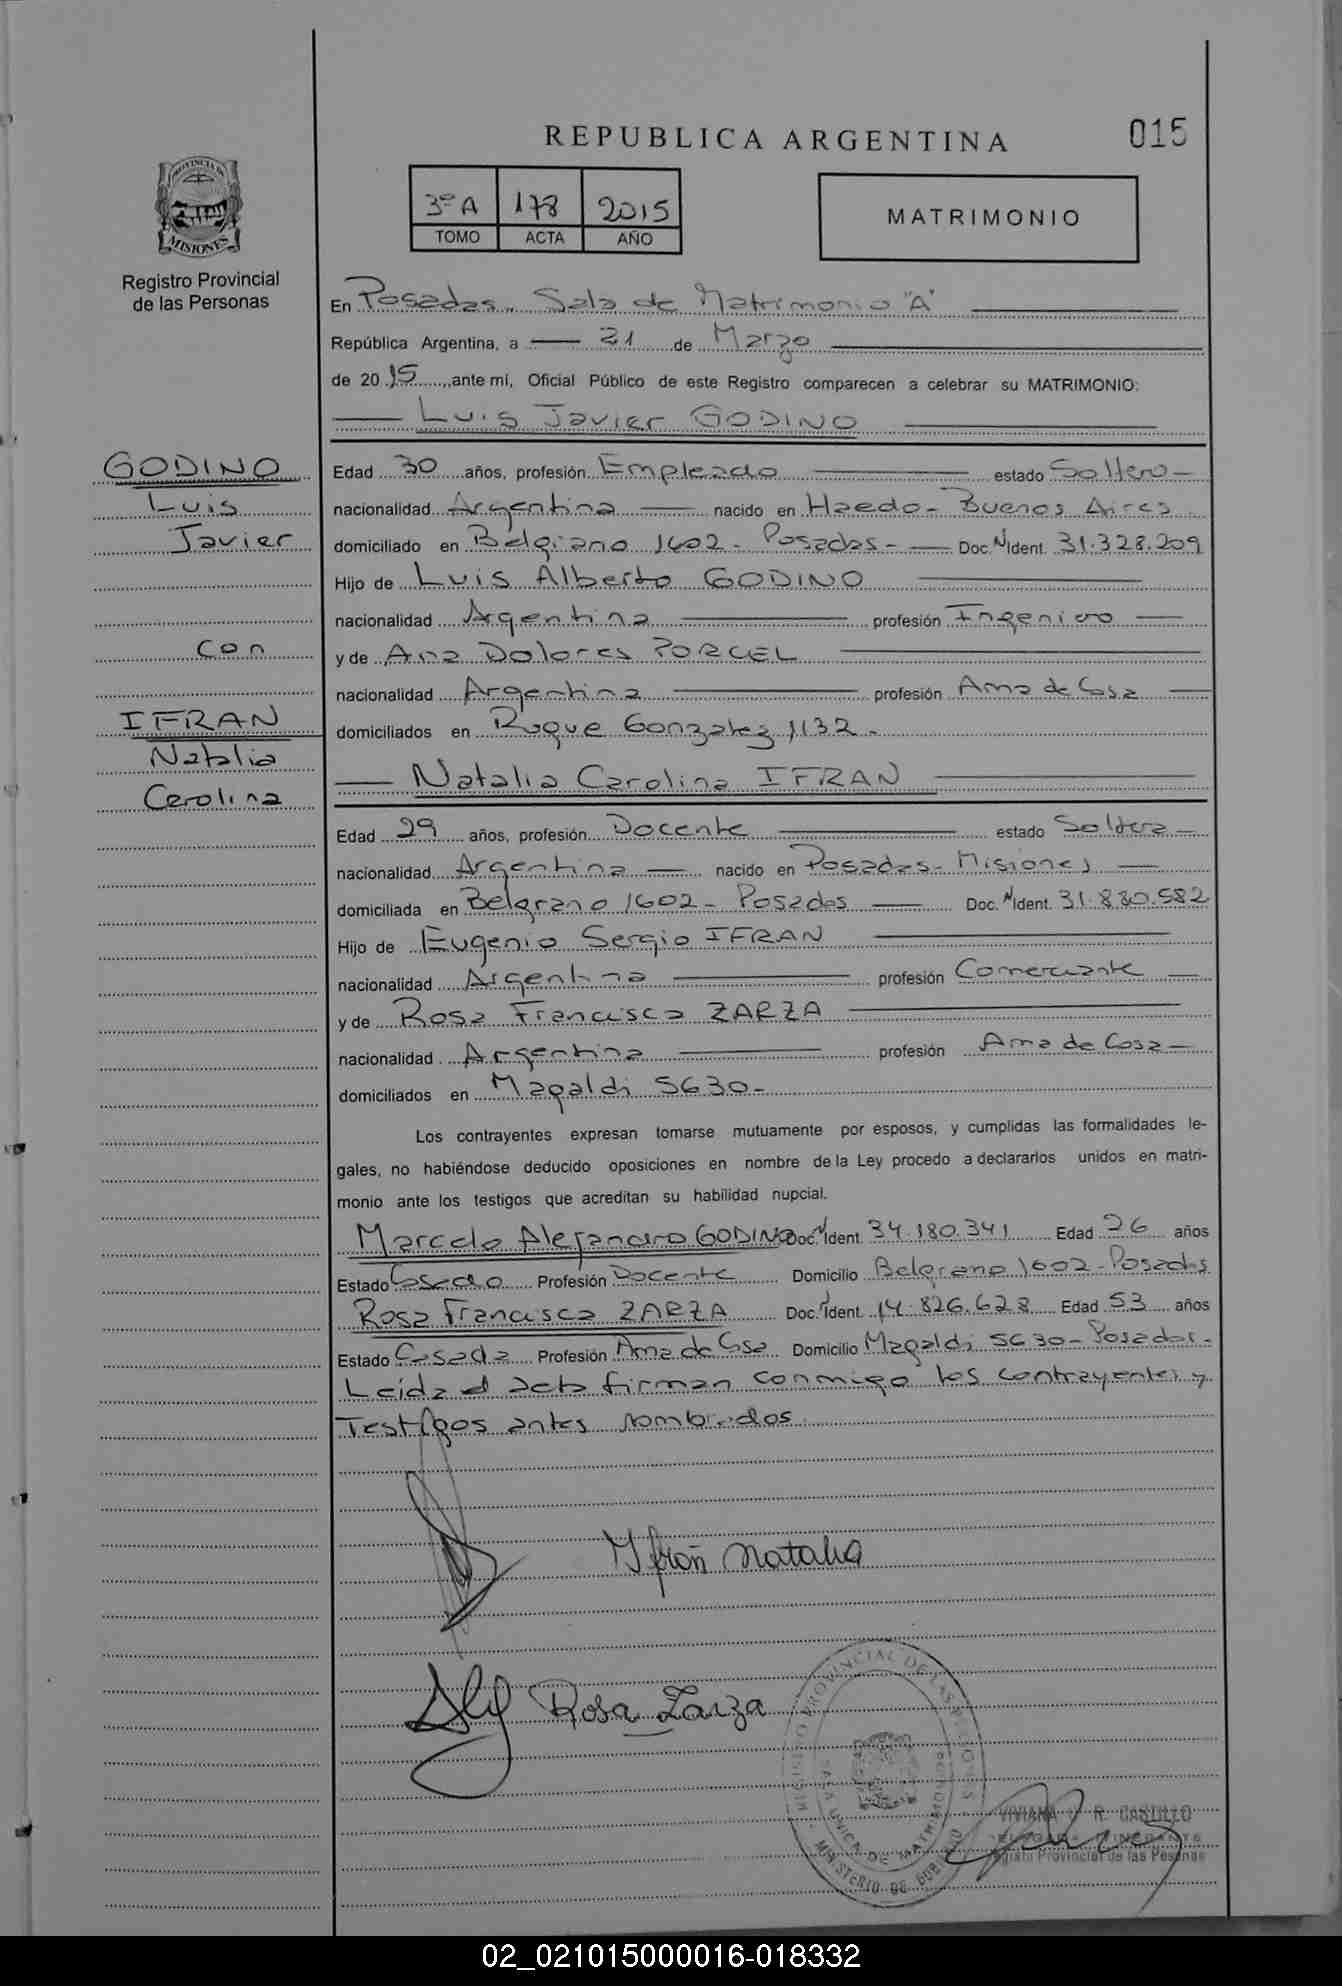 REPUBLICA ARGENTINA
015
PROVINCIA DE
MISIONES
Registro Provincial
de las Personas
3º A 178 2015
TOMO ACTA AÑO
MATRIMONIO
En Posadas, Sala de Matrimonio "A"
República Argentina, a 21 de Marzo
de 2015, ante mí, Oficial Público de este Registro comparecen a celebrar su MATRIMONIO:
Luis Javier GODINO
GODINO
Luis
Javier
con
IFRAN
Natalia
Carolina
Edad 30 años, profesión Empleado estado Soltero
nacionalidad Argentina nacido en Haedo - Buenos Aires
domiciliado en Belgrano 1602 - Posadas - Doc. N Ident. 31.328.209
Hijo de Luis Alberto GODINO
nacionalidad Argentina profesión Ingeniero
y de Ana Dolores PORCEL
nacionalidad Argentina profesión Ama de Casa
domiciliados en Roque Gonzalez 1132 -
Natalia Carolina IFRAN
Edad 29 años, profesión Docente estado Soltera
nacionalidad Argentina nacido en Posadas - Misiones
domiciliada en Belgrano 1602 - Posadas Doc. N Ident. 31.880.582
Hijo de Eugenio Sergio IFRAN
nacionalidad Argentina profesión Comerciante
y de Rosa Francisca ZARZA
nacionalidad Argentina profesión Ama de Casa
domiciliados en Magaldi 5630 -
Los contrayentes expresan tomarse mutuamente por esposos, y cumplidas las formalidades le-
gales, no habiéndose deducido oposiciones en nombre de la Ley procedo a declararlos unidos en matri-
monio ante los testigos que acreditan su habilidad nupcial.
Marcelo Alejandro GODINO Doc. N Ident. 34.180.341 Edad 26 años
Estado Casado Profesión Docente Domicilio Belgrano 1602 - Posadas
Rosa Francisca ZARZA Doc. N Ident. 14.826.628 Edad 53 años
Estado Casada Profesión Ama de Casa Domicilio Magaldi 5630 - Posadas -
Leída el acta firman conmigo los contrayentes y
Testigos antes nombrados
Ifrán Natalia
Rosa Zarza
REGISTRO PROVINCIAL DE LAS PERSONAS
SALA UNICA DE MATRIMONIOS
MINISTERIO DE GOBIERNO
VIVIANA R. CASTILLO
Registro Provincial de las Personas
02_021015000016-018332